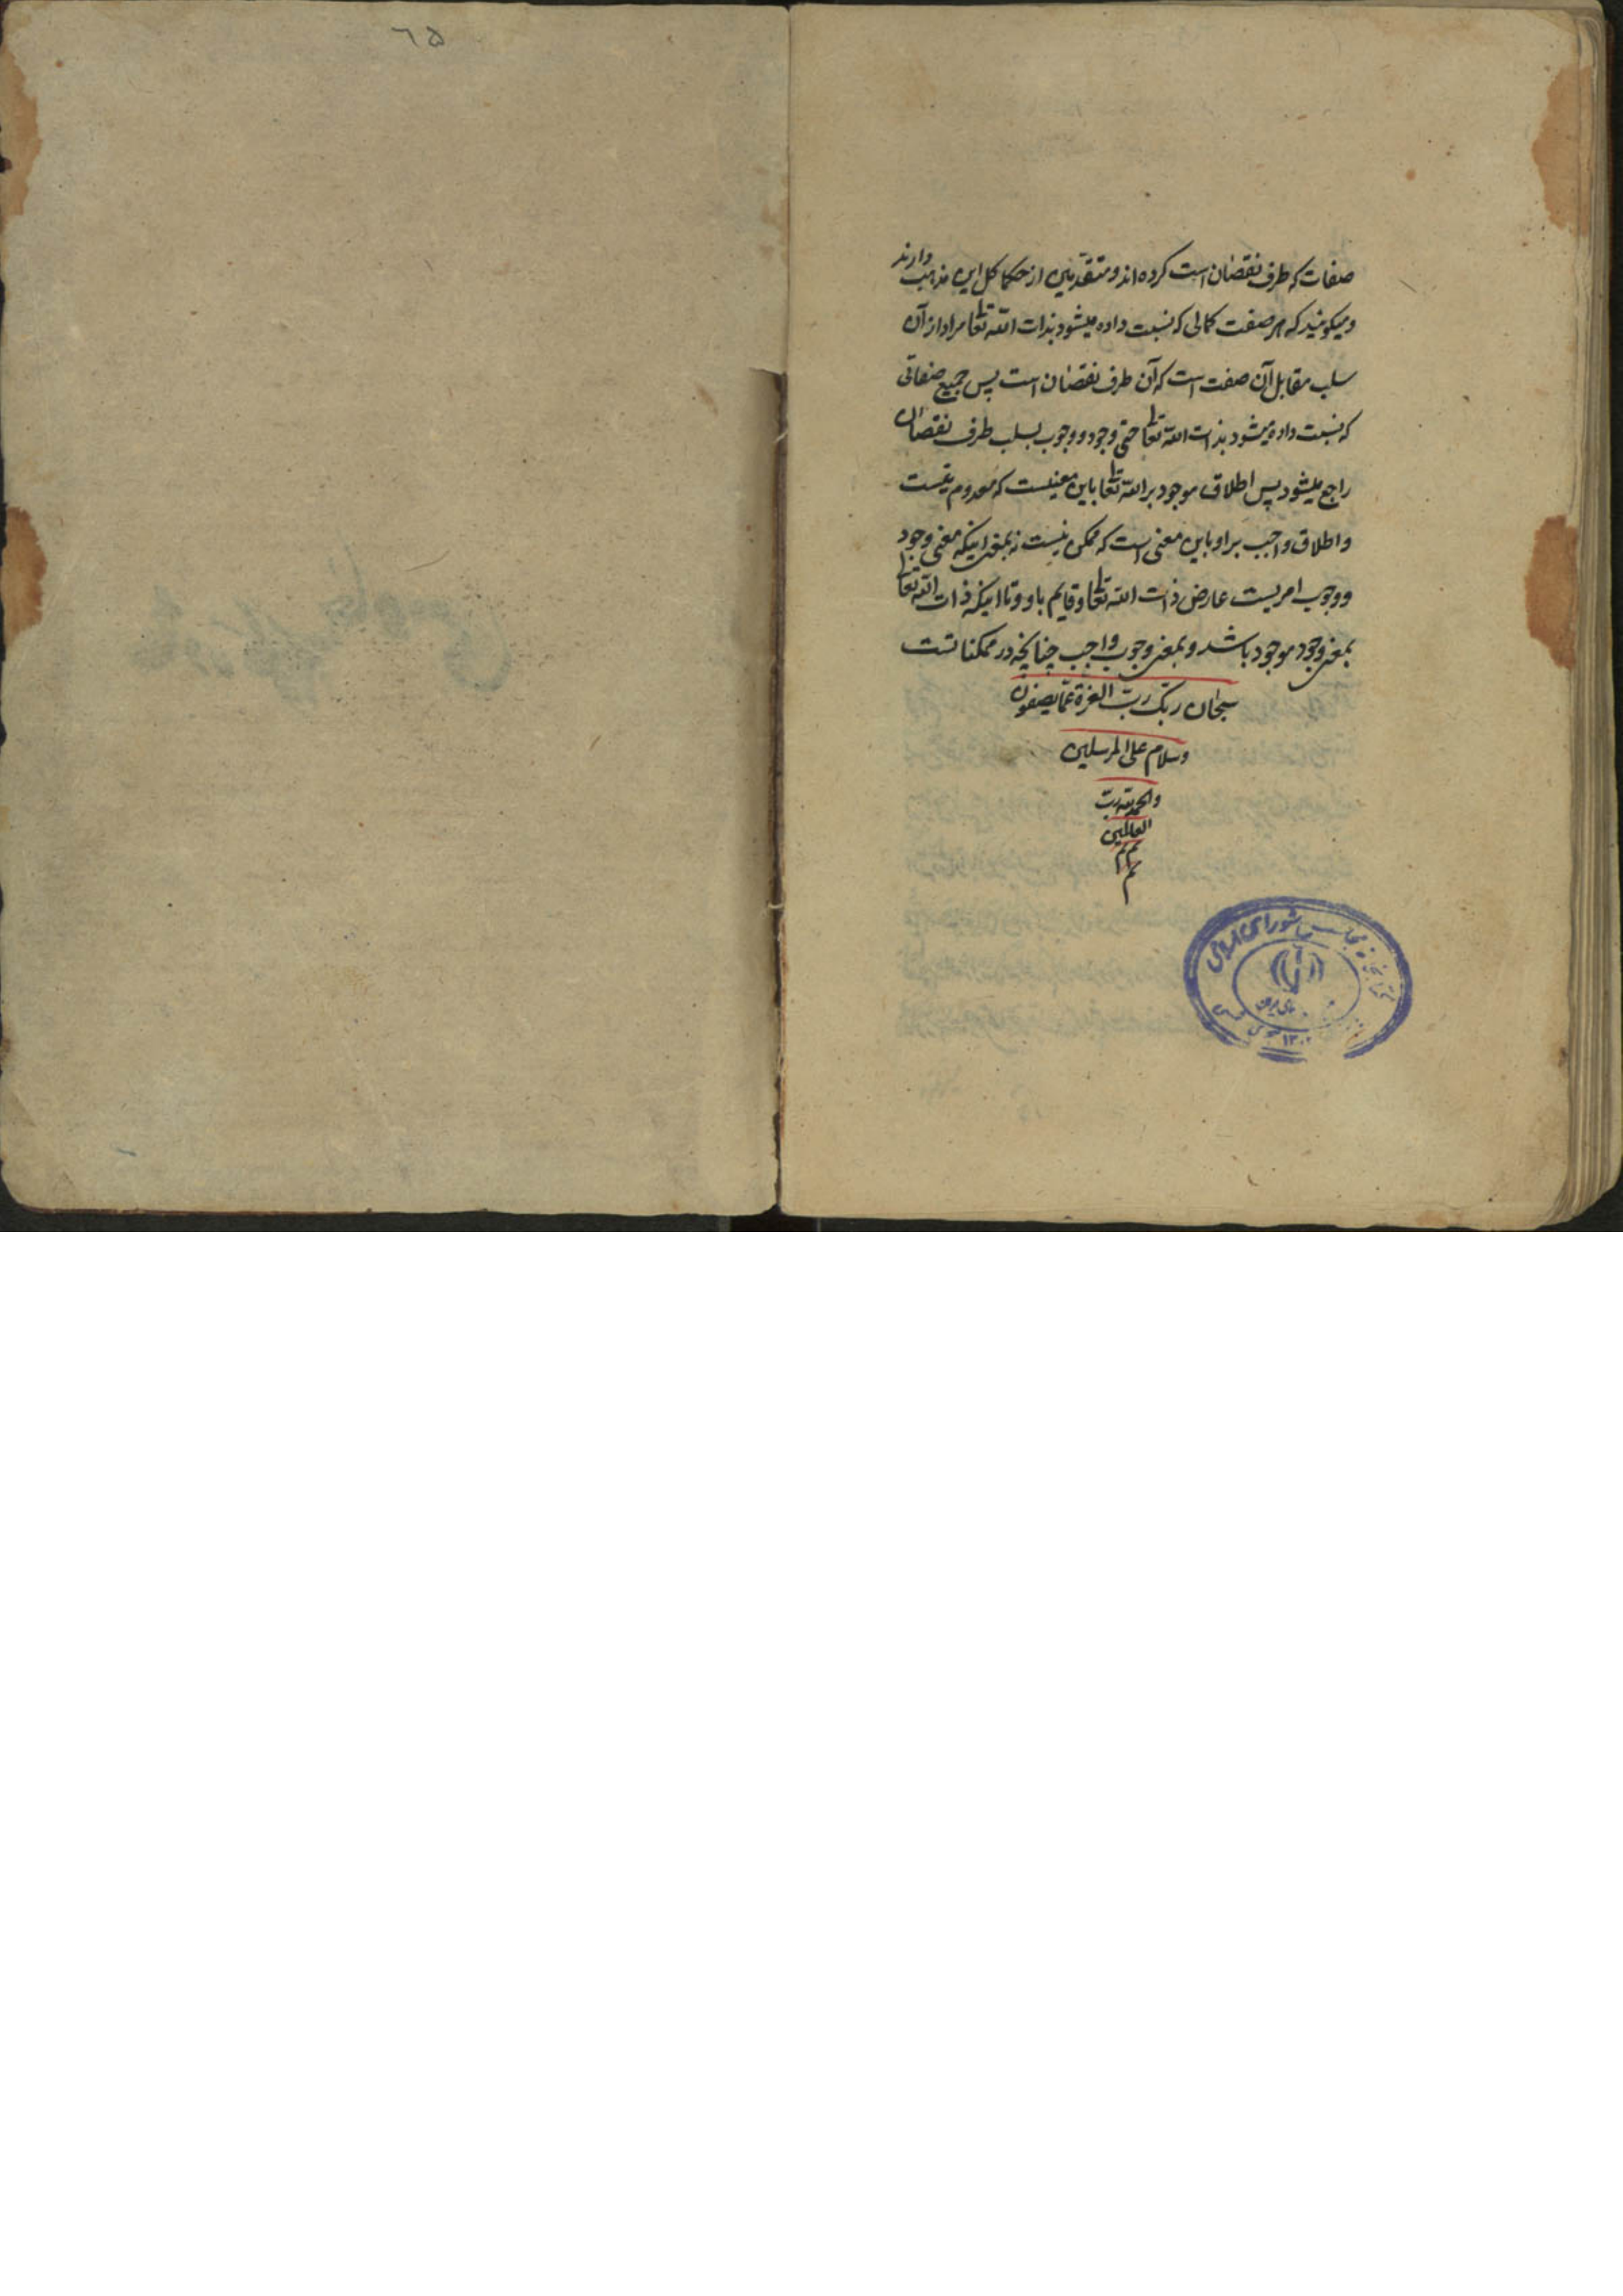 صفات که طرف نقصان است کرده‌اند و متقدمین از حکما کل این مذهب دارند
و میگویند که هر صفت کمالی که نسبت داده میشود بذات الله تعا مراد از آن
سلب مقابل آن صفت است که آن طرف نقصان است پس جمیع صفاتی
که نسبت داده میشود بذات الله تعا حتی وجود و وجوب بسلب طرف نقصان
راجع میشود پس اطلاق موجود بر الله تعا باین معنیست که معدوم نیست
و اطلاق واجب بر او باین معنی است که ممکن نیست نه بمعنی اینکه معنی وجود
و وجوب امریست عارض ذات الله تعا و قایم باو و تا اینکه ذات الله تعا
بمعنی وجود موجود باشد و بمعنی وجوب واجب چنانچه در ممکناتست
سبحان ربک رب العزة عما یصفون
وسلام علی المرسلین
والحمد لله رب
العالمین
تم تم
تم
شورای اسلامی
۱۳۰۰
٦۵